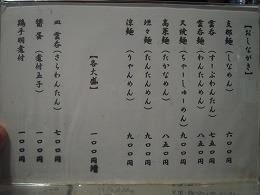 【おしながき】
支那麺（しなめん） 六〇〇
雲呑（すーぷわんたん） 七五〇
雲呑麺（わんたんめん） 八五〇
叉焼麺（ちゃーしゅーめん） 九〇〇
高菜麺（たかなめん） 八五〇
坦々麺（たんたんめん） 九〇〇
涼麺（りゃんめん） 九〇〇
【各大盛】 一〇〇円増
皿雲呑（さらわんたん） 七〇〇円
醤蛋（煮付玉子） 一〇〇円
鶏手羽煮付 一〇〇円